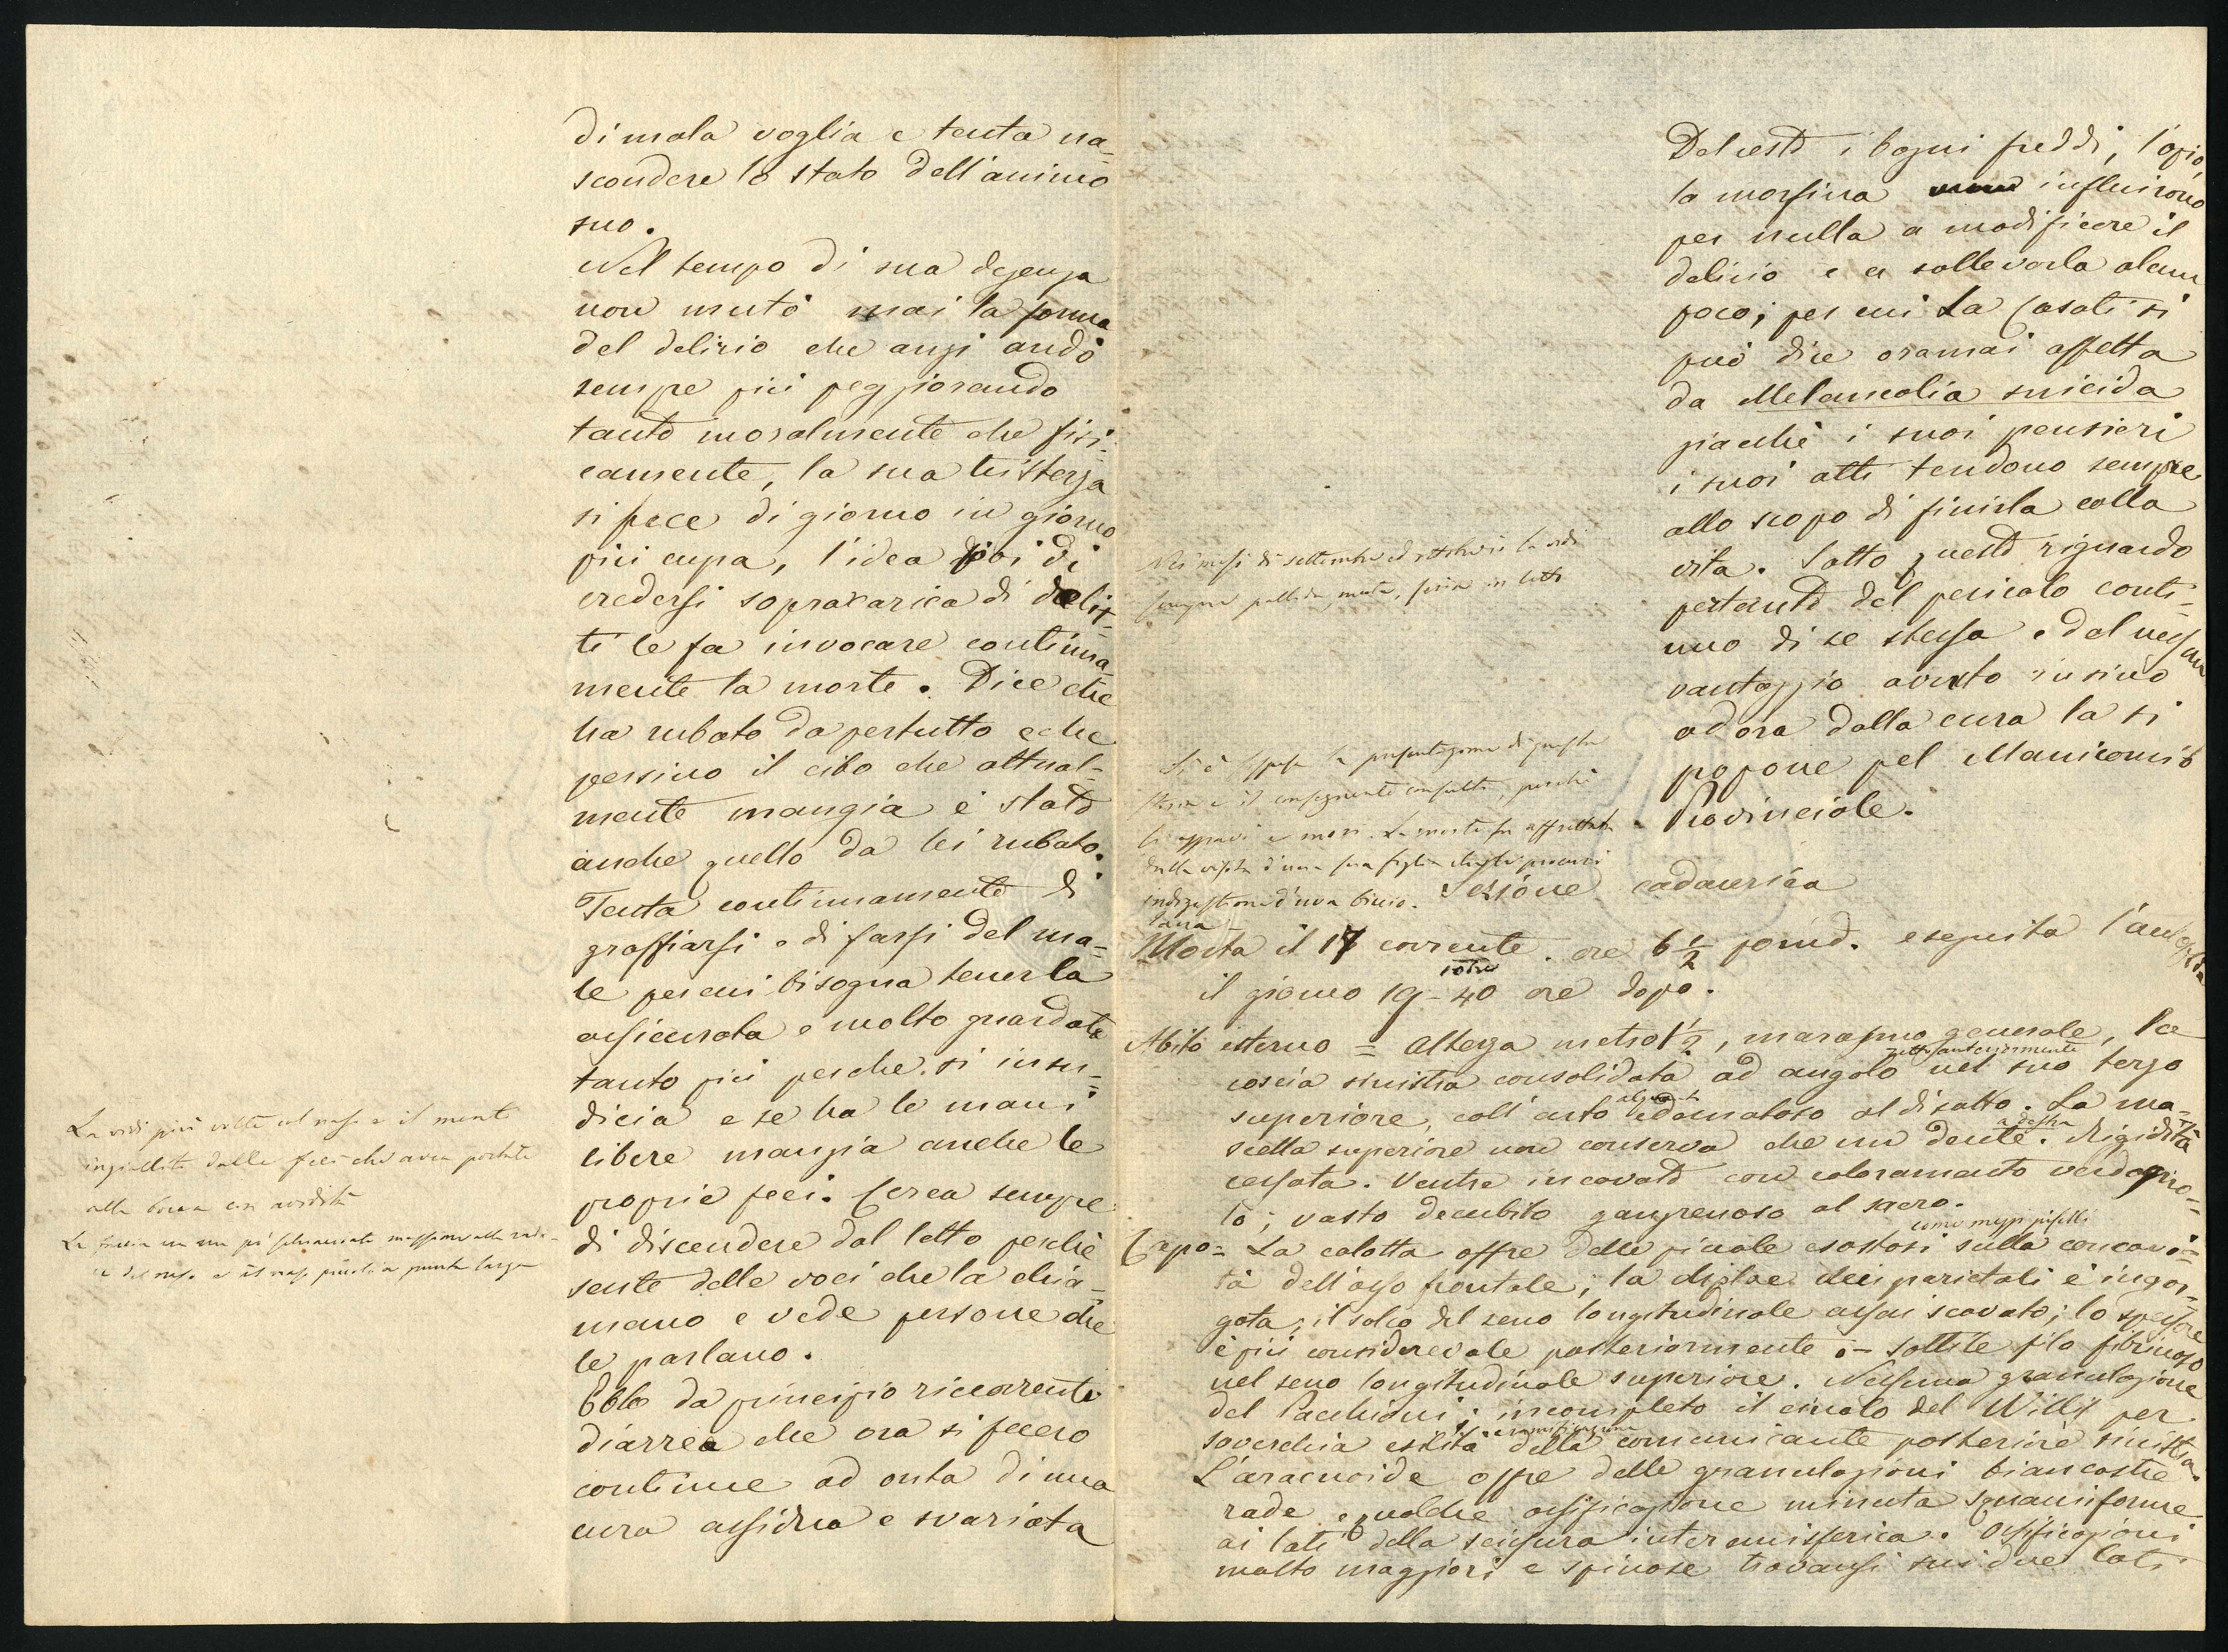 di mala voglia e tenta na-
scondere lo stato dell'animo
suo.
Nel tempo di sua degenza
non mutò mai la forma
del delirio che anzi andò
sempre più peggiorando
tanto moralmente che fisi-
camente, la sua tristezza
si fece di giorno in giorno
più cupa, l'idea poi di
credersi sopracarica di delit-
ti le fa invocare continua
mente la morte. Dice che
ha rubato da pertutto e che
persino il cibo che attual-
mente mangia è stato
anche quello da lei rubato.
Tenta continuamente di
graffiarsi e di farsi del ma-
le per cui bisogna tenerla
assicurata e molto guardata
tanto più perche si insu-
dicia e se ha le mani
libere mangia anche le
proprie feci. Cerca sempre
di discendere dal letto perchè
sente delle voci che la chia-
mano e vede persone che
le parlano.
Ebbe da principio ricorrente
diarrea che ora si fecero
continue ad onta di una
cura assidua e svariata
La vidi più volte col naso e il mento
ingialliti dalle feci che avea portate
alla bocca con avidità
La faccia un po' massime alla radi-
ce del naso e il naso punta larga
Del resto i bagni freddi, l'opio
la morfina influirono
per nulla a modificare il
delirio e a sollevarla alcun
poco; per cui La Casati si
può dire oramai affetta
da Melancolia suicida
giacchè i suoi pensieri
i suoi atti tendono sempre
allo scopo di finirla colla
vita. Sotto questo riguardo
pertanto del pericolo conti-
nuo di se stessa e del nessun
vantaggio avuto insino
ad ora dalla cura la si
popone pel Manicomio
Provinciale.
Nei mesi di settembre ed ottobre la vidi
sempre pallida, muta, fissa in letto
Si è la presentazione di questa
e il conseguente consulto, perchè
si aggravò e morì. La morte fu affrettata
dalla visita d'una sua figlia che le procurò
indigestione d'uva
Sezione cadaverica
Morta il 17 corrente. ore 6 1/2 pomid. eseguita l'autopsia
il giorno 19 - 40 ore dopo.
Abito esterno = altezza metro 1 1/2, marasmo generale, la
coscia sinistra consolidata ad angolo anteriormente nel suo terzo
superiore, coll'arto edematoso al disotto. La ma-
scella superiore non conserva che un dente a destra. Rigidità
cessata. Ventre incavato con coloramento verdogno-
lo; vasto decubito gangrenoso al sacro.
Capo = La calotta offre delle piccole esostosi come mezzi piselli sulla concavi-
tà dell'osso frontale; la diploe dei parietali è ingor-
gata; il solco del seno longitudinale assai scavato; lo spessore
è più considerevole posteriormente - sottile filo fibrinoso
nel seno longitudinale superiore. Nessuna granulazione
del Pacchioni; incompleto il circolo del Willis per
soverchia esilità della comunicante posteriore sinistra.
L'aracnoide offre delle granulazioni biancastre
rade e qualche ossificazione minuta squamiforme
ai lati della scissura interemisferica. Ossificazioni
molto maggiori e spinose trovansi sui due lati